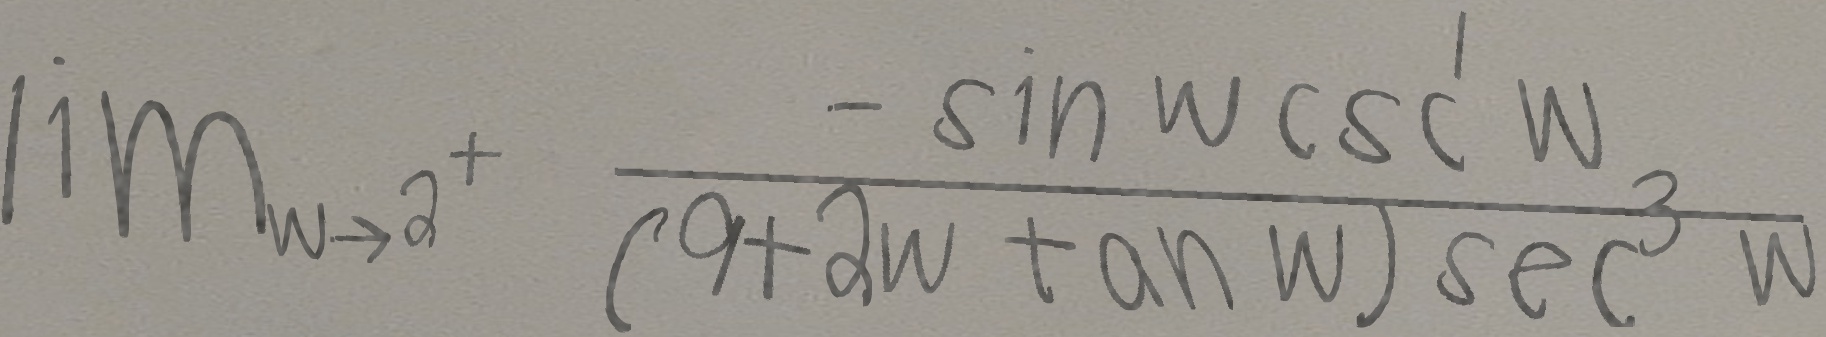 \lim_{w \to 2^+} \frac{-\sin w \csc^1 w}{(9+2w \tan w) \sec^3 w}